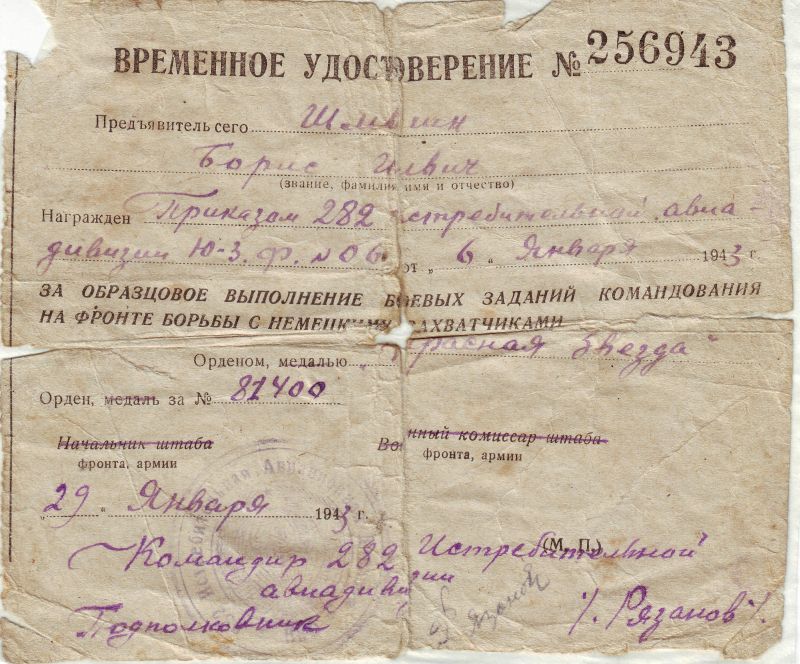 ВРЕМЕННОЕ УДОСТОВЕРЕНИЕ № 256943
Предъявитель сего
Борис Ильич
(звание, фамилия имя и отчество)
Награжден Приказом 282 истребительной авиа-
дивизии Ю-З. Ф. № 06 от „ 6 „ Января 1943 г.
ЗА ОБРАЗЦОВОЕ ВЫПОЛНЕНИЕ БОЕВЫХ ЗАДАНИЙ КОМАНДОВАНИЯ
НА ФРОНТЕ БОРЬБЫ С НЕМЕЦКИМИ ЗАХВАТЧИКАМИ
Орденом, медалью „Красная Звезда"
Орден, медаль за № 81400
Начальник штаба Военный комиссар штаба
фронта, армии фронта, армии
„29" Января 1943 г.
(М. П.)
Командир 282 Истребительной
авиадивизии
Подполковник /. Рязанов /.